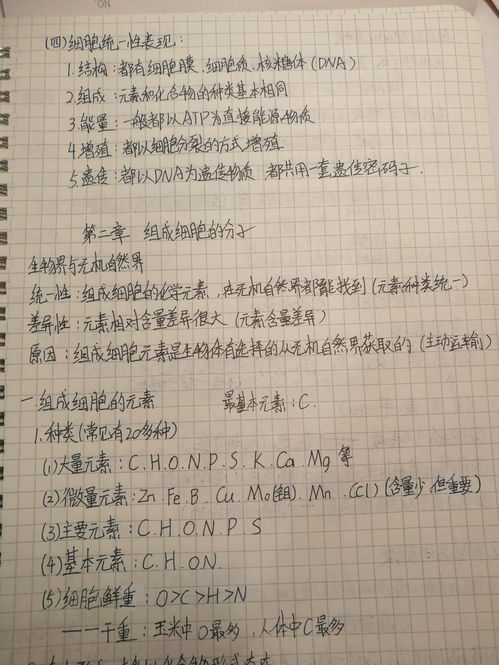 (四)细胞统一性表现:
1.结构:都有细胞膜、细胞质、核糖体(DNA)
2.组成:元素和化合物的种类基本相同
3.能量:一般都以ATP为直接能源物质
4.增殖:都以细胞分裂的方式增殖
5.遗传:都以DNA为遗传物质 都共用一套遗传密码子.
第二章 组成细胞的分子
生物界与无机自然界
统一性:组成细胞的化学元素,在无机自然界都能找到(元素种类统一)
差异性:元素相对含量差异很大(元素含量差异)
原因:组成细胞元素是生物体有选择的从无机自然界获取的(主动运输)
一.组成细胞的元素 最基本元素:C.
1.种类(常见有20多种)
(1)大量元素:C.H.O.N.P.S.K.Ca.Mg 等
(2)微量元素:Zn.Fe.B.Cu.Mo(钼).Mn.(Cl)(含量少,但重要)
(3)主要元素:C.H.O.N.P.S
(4)基本元素:C.H.O.N.
(5)细胞鲜重:O>C>H>N
——干重:玉米中O最多,人体中C最多